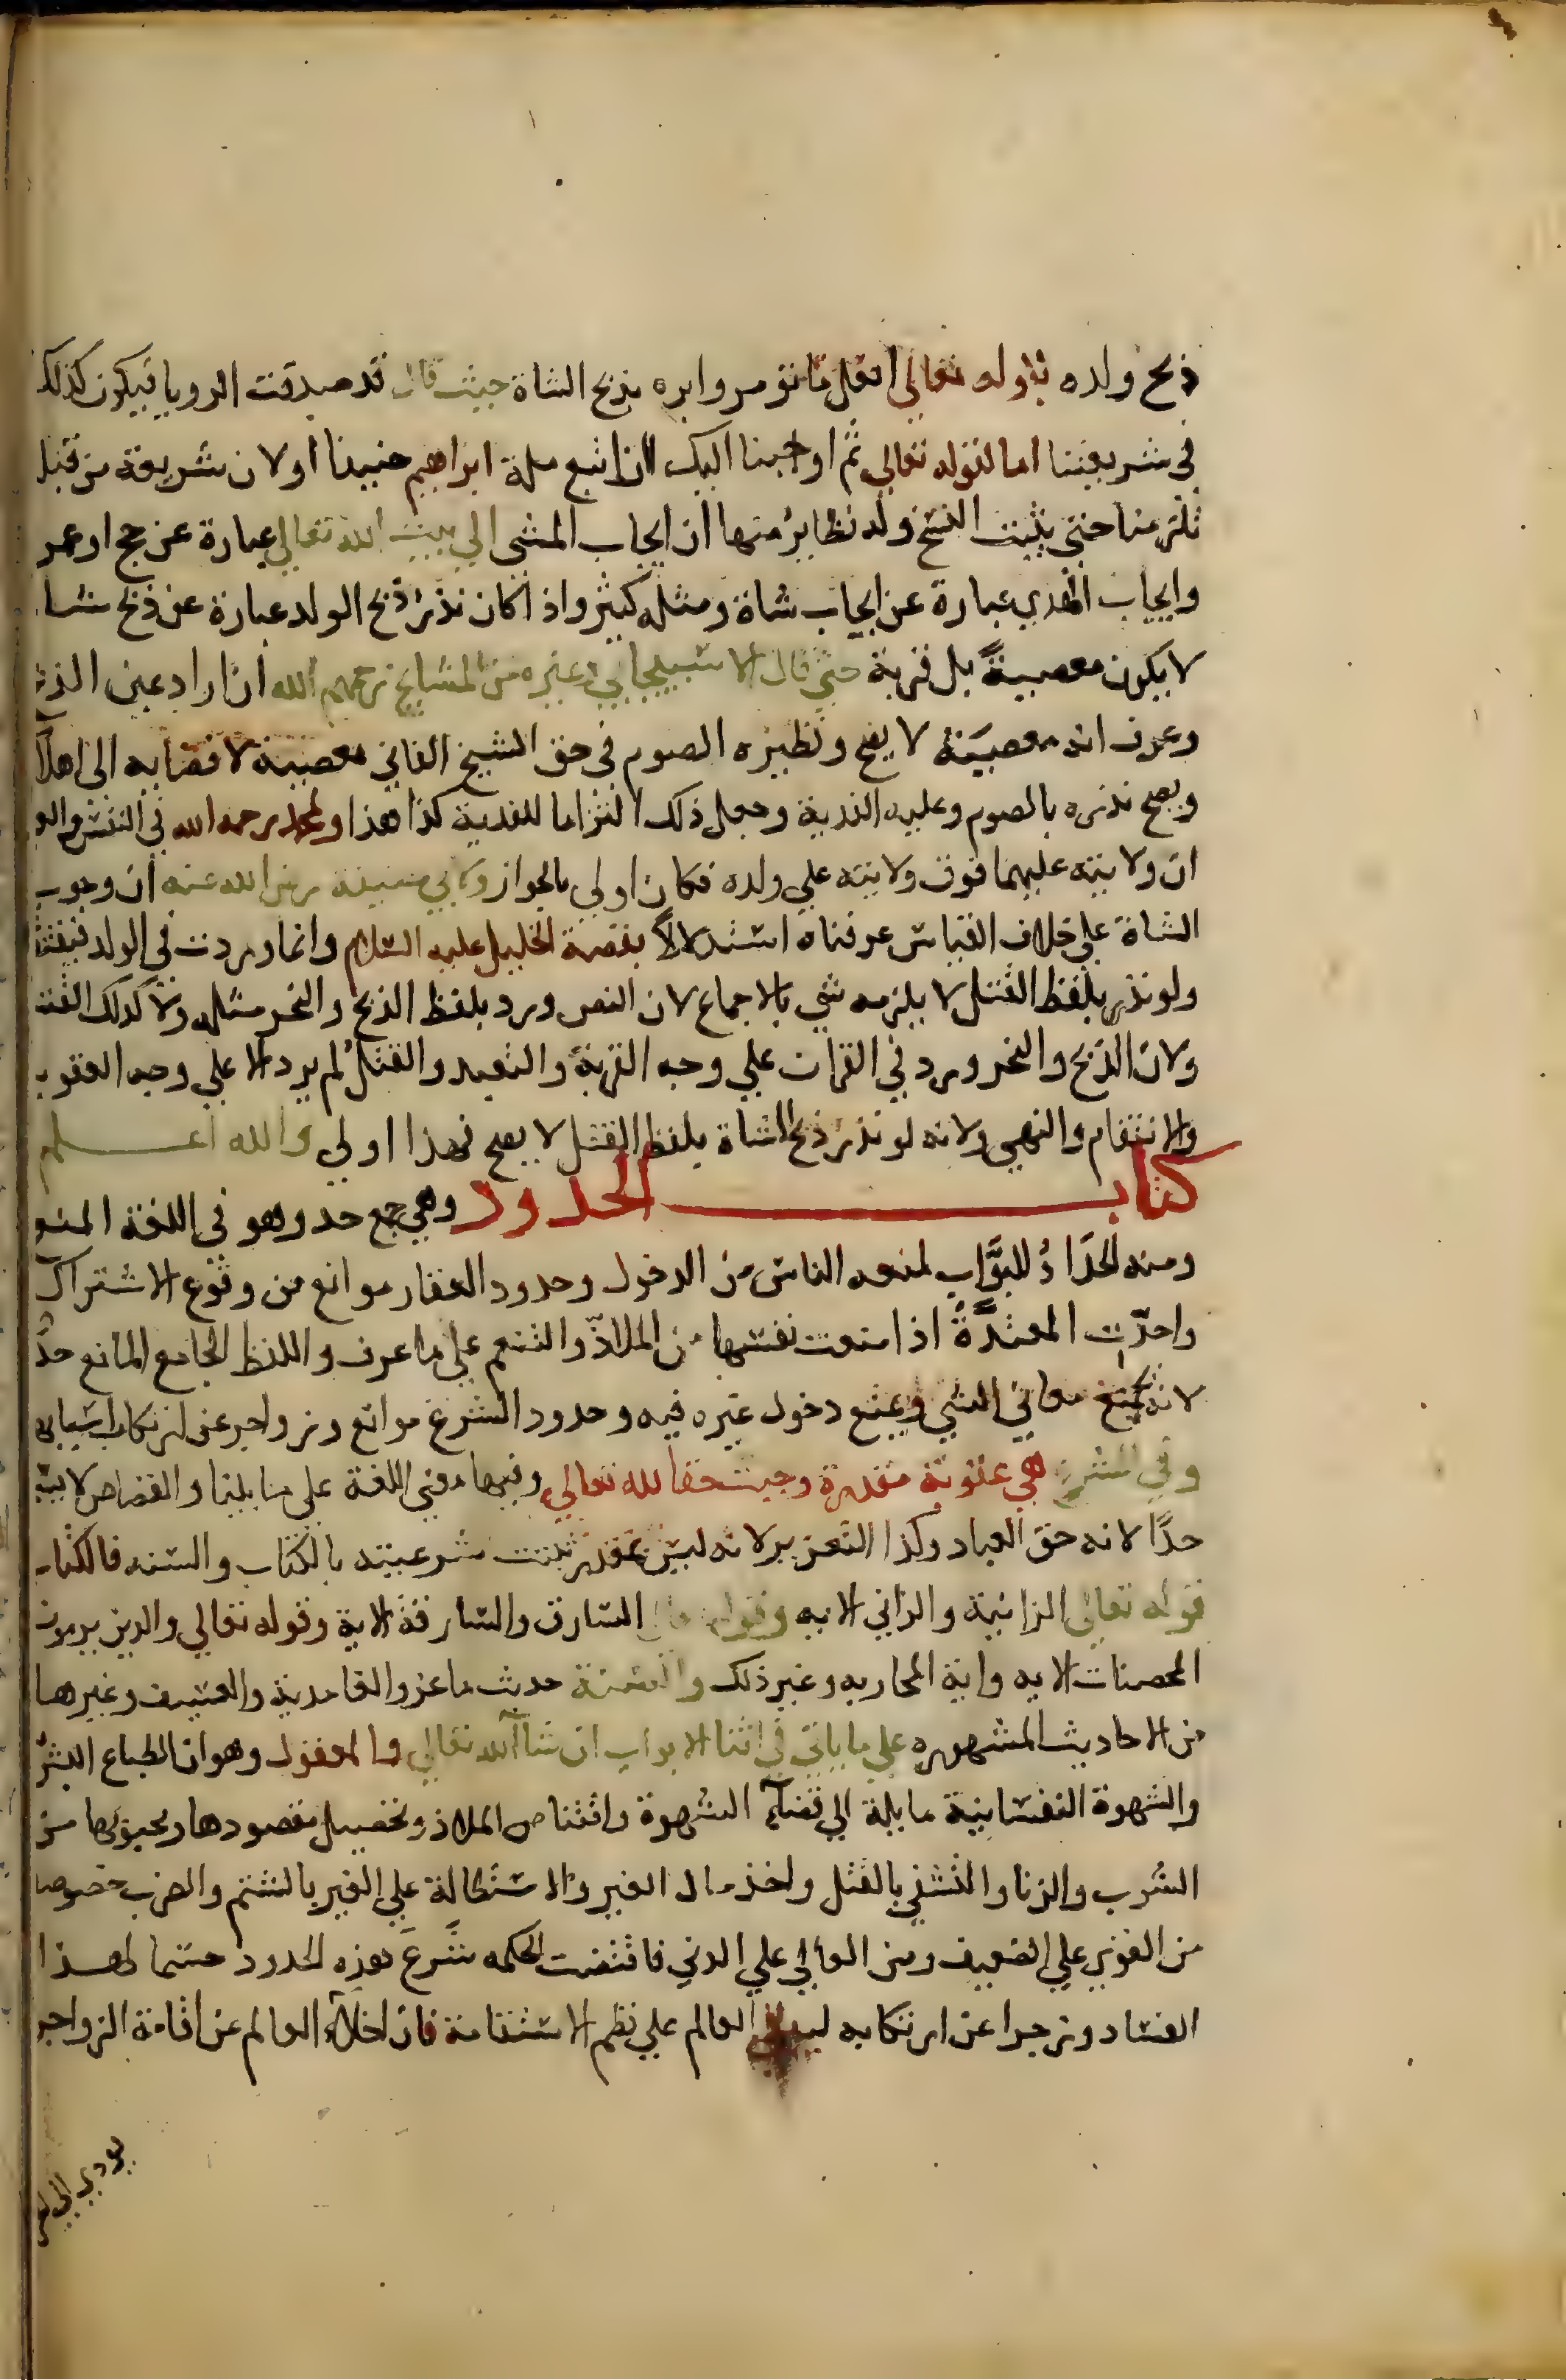 ذبح ولده بقوله تعالى افعل ما تؤمر وامره بذبح الشاة حيث قال قد صدقت الرويا فيكون كذلك
في شريعتنا اما لقوله تعالى ثم اوحينا اليك ان اتبع ملة ابراهيم حنيفا او لان شريعة من قبلنا
تلزمنا حتى يثبت النسخ وله نظاير منها ان ايجاب المشي الي بيت الله تعالى عبارة عن حج او عمرة
وايجاب الهدي عبارة عن ايجاب شاة ومثله كثير واذا كان نذر ذبح الولد عبارة عن ذبح شاة
لا يكون معصيةً بل قربة حتى قال الاسبيجابي وغيره من المشايخ رحمهم الله ان اراد عين الذبح
وعرف انه معصية لا يصح ونظيره الصوم في حق الشيخ الفاني معصية لافضايه الى اهلاكه
ويصح نذره بالصوم وعليه الفدية وجعل ذلك التزاما للفدية كذا هذا ولمحمد رحمه الله في النفس والعبد
ان ولايته عليهما فوق ولايته على ولده فكان اولى بالجواز ولابي حنيفة رضي الله عنه ان وجوب
الشاة على خلاف القياس عرفناه استدلالاً بقصة الخليل عليه السلام وانما وردت في الولد فيقتصر
ولو نذر بلفظ القتل لا يلزمه شي بالاجماع لان النص ورد بلفظ الذبح والنحر مثله ولا كذلك القتل
ولان الذبح والنحر ورد في القران على وجه القربة والتعبد والقتل لم يرد الا على وجه العقوبة
والانتقام والنهي ولانه لو نذر ذبح الشاة بلفظ القتل لا يصح فهذا اولى والله اعلم
كتاب الحدود وهي جمع حد وهو في اللغة المنع
ومنه الحدّادُ للبَوَّاب لمنعه الناس من الدخول وحدود العقار موانع من وقوع الاشتراك
واحدّت المعتدَّةُ اذا منعت نفسها من الملاذّ والتنعم على ما عرف واللفظ الجامع المانع حدٌّ
لانه يجمع معاني الشي ويمنع دخول غيره فيه وحدود الشرع موانع وزواجر عن ارتكاب اسبابها
وفي الشرع هي عقوبة مقدرة وجبت حقا لله تعالى وفيها معنى اللغة على ما بينا والقصاص لا يسمى
حدًّا لانه حق العباد وكذا التعزير لانه ليس بمقدر ثبتت شرعيته بالكتاب والسنه فالكتاب
قوله تعالى الزانية والزاني الايه وقوله تعالى السارق والسارقة الاية وقوله تعالى والذين يرمون
المحصنات الايه واية المحاربه وغير ذلك والسنة حديث ماعز والغامدية والعسيف وغيرها
من الاحاديث المشهوره على ما ياتي في اثنا الابواب ان شاالله تعالى والمعقول وهو ان الطباع البشرية
والشهوة النفسانية مايلة الي قضآء الشهوة واقتناص الملاذ وتحصيل مقصودها ومحبوبها من
الشرب والزنا والتشفي بالقتل واخذ مال الغير والاستطالة علي الغير بالشتم والضرب خصوصا
من القوي علي الضعيف ومن العالي علي الدني فاقتضت الحكمه شَرعَ هذه الحدود حسما لهذا
الفساد وزجرا عن ارتكابه ليبقي العالم علي نظم الاستقامة فان اخلاء العالم عن اقامة الزواجر
يودي الي